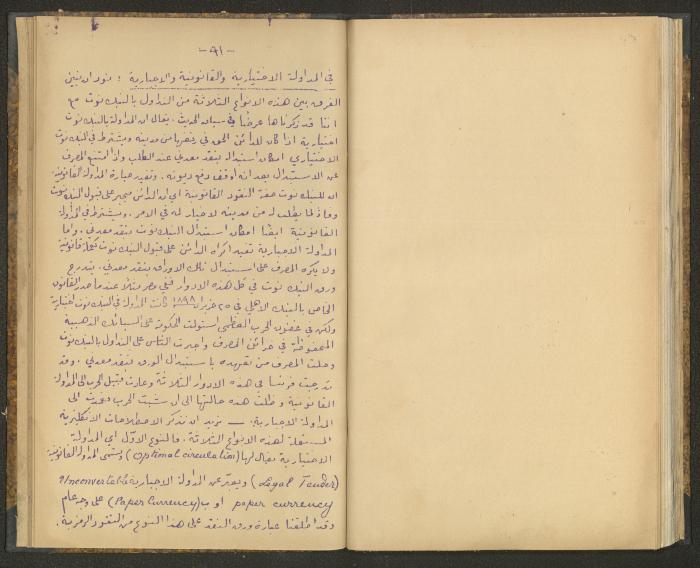 - ٩١ -
في المداولة الاختيارية والقانونية والاجبارية : نود ان نبين
الفرق بين هذه الانواع الثلاثة من التداول بالبنك نوت مع
اننا قد ذكرناها عرضًا في سياق الحديث . يقال ان المداولة بالبنك نوت
اختيارية اذا كان للدائن الحق في رفضها من مدينه ويشترط في البنك نوت
الاختياري امكان استبداله بنقد معدني عند الطلب واذا امتنع المصرف
عن الاستبدال يعد انه اوقف دفع ديونه . وتفيد عبارة المداولة القانونية
ان للبنك نوت صفة النقود القانونية اي ان الدائن مجبر على قبول البنك نوت
وفاءً لما يطلب له من مدينه لا خيار له في الامر . ويشترط في المداولة
القانونية ايضًا امكان استبدال البنك نوت بنقد معدني . واما
المداولة الاجبارية تفيد اكراه الدائن على قبول البنك نوت كعملة قانونية
ولا يكره المصرف على استبدال تلك الاوراق بنقد معدني . يتدرج
ورق البنك نوت في كل هذه الادوار ففي مصر مثلًا عندما صدر القانون
الخاص بالبنك الاهلي في ٢٥ حزيران ١٨٩٨ كانت المداولة في البنك نوت اختيارية
ولكن في غضون الحرب العظمى استولت الحكومة على السبائك الذهبية
المحفوظة في خزائن المصرف واجبرت الناس على التداول بالبنك نوت
وحلت المصرف من تعهده باستبدال الورق بنقد معدني . وقد
تدرجت فرنسا في هذه الادوار الثلاثة وعادت قبيل الحرب الى المداولة
القانونية وظلت هذه حالتها الى ان شبت الحرب فعدت الى
المداولة الاجبارية . — نريد ان نذكر الاصطلاحات الانكليزية
المستعملة لهذه الانواع الثلاثة . فالنوع الاول اي المداولة
الاختيارية يقال لها (Optional circulation) وتسمى المداولة القانونية
(Legal Tender) ويعبر عن المداولة الاجبارية Inconvertable
paper currency او ب (Paper Currency) على وجه عام
وقد اطلقنا عبارة ورق النقد على هذا النوع من النقود الرمزية .